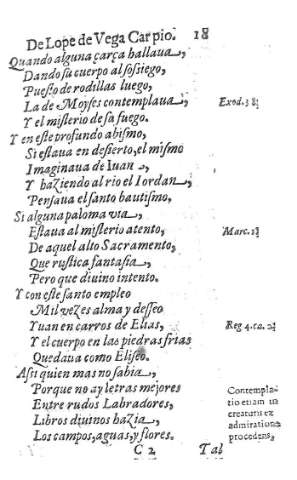 De Lope de Vega Carpio. 18
Quando alguna çarça hallaua,
Dando su cuerpo al sossiego,
Puesto de rodillas luego,
La de Moyses contemplaua, Exod. 3
Y el misterio de su fuego.
Y en este profundo abismo,
Si estaua en desierto, el mismo
Imaginaua de Iuan,
Y haziendo al rio el Iordan,
Pensaua el santo bautismo,
Si alguna paloma via,
Estaua al misterio atento, Marc. 1
De aquel alto Sacramento,
Que rustica fantasia,
Pero que diuino intento.
Y con este santo empleo
Mil vezes alma y desseo
Yuan en carros de Elias, Reg 4. ca. 2
Y el cuerpo en las piedras frias
Quedaua como Eliseo.
Assi quien mas no sabia,
Porque no ay letras mejores Contempla-
Entre rudos Labradores, tio etiam in
Libros diuinos hazia, creaturis ex
Los campos, aguas, y flores. admiratione
procedens,
C 2 Tal